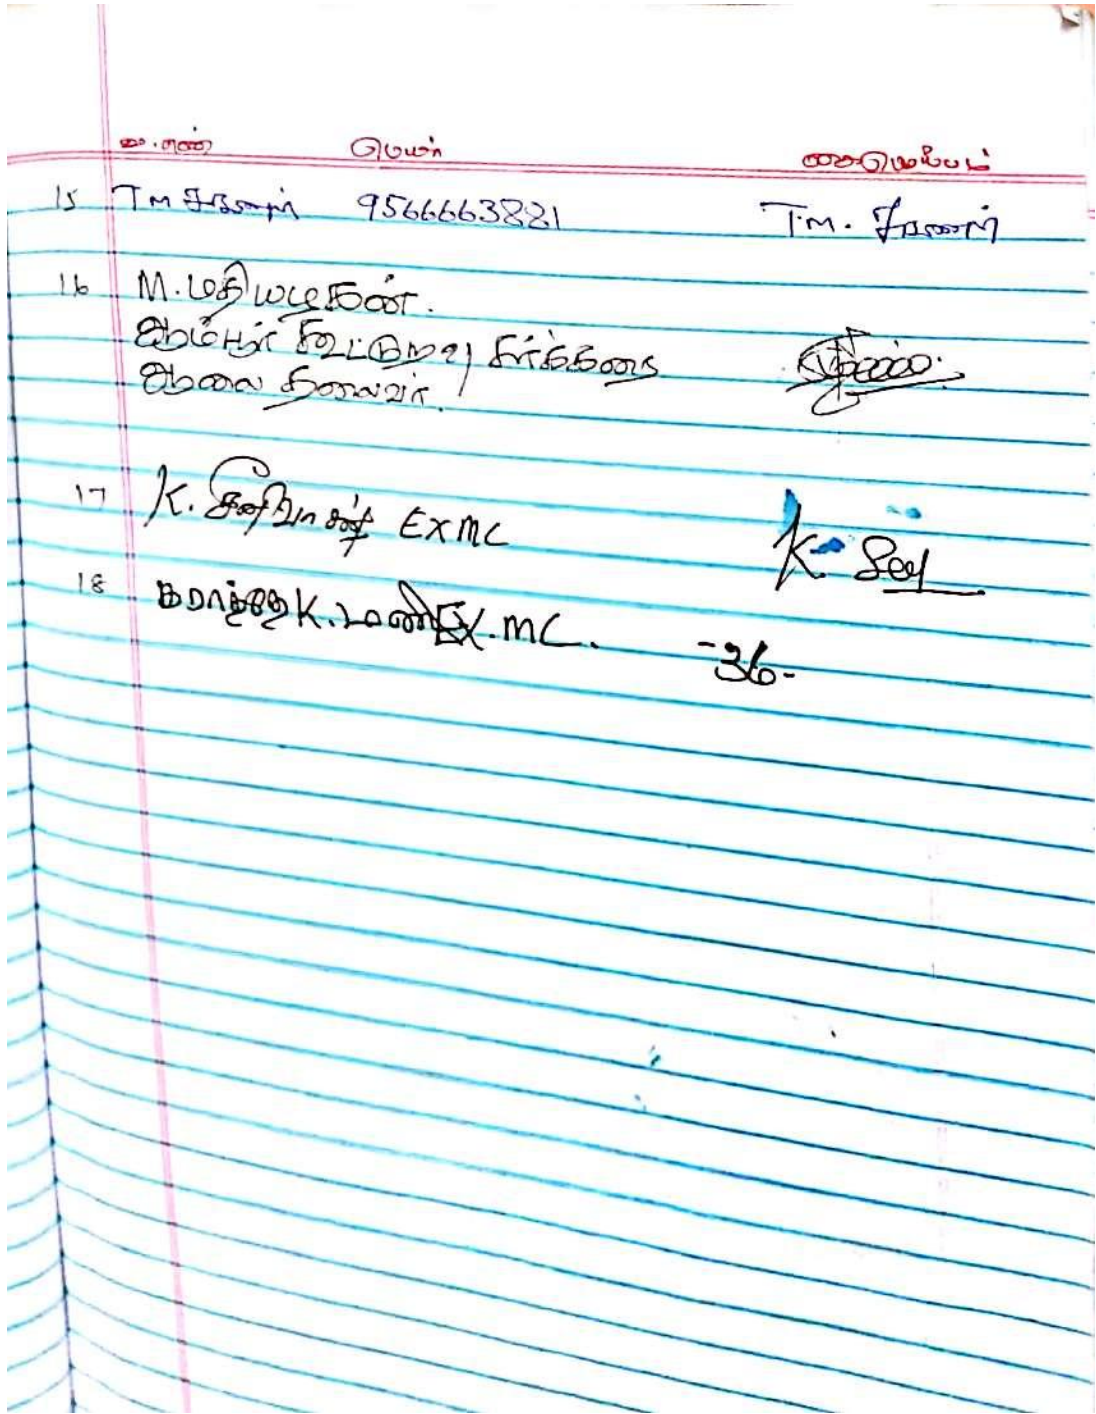 வ.எண் பெயர் கையொப்பம்
15 TM சரவணன் 9566663881 T.M. சரவணன்
16 M. மதியழகன்.
ஆம்பூர் கூட்டுறவு சர்க்கரை
ஆலை தலைவர்.
17 K. சீனிவாசன் EXMC K.
18 கராத்தே K. மணி EX.MC. -36-